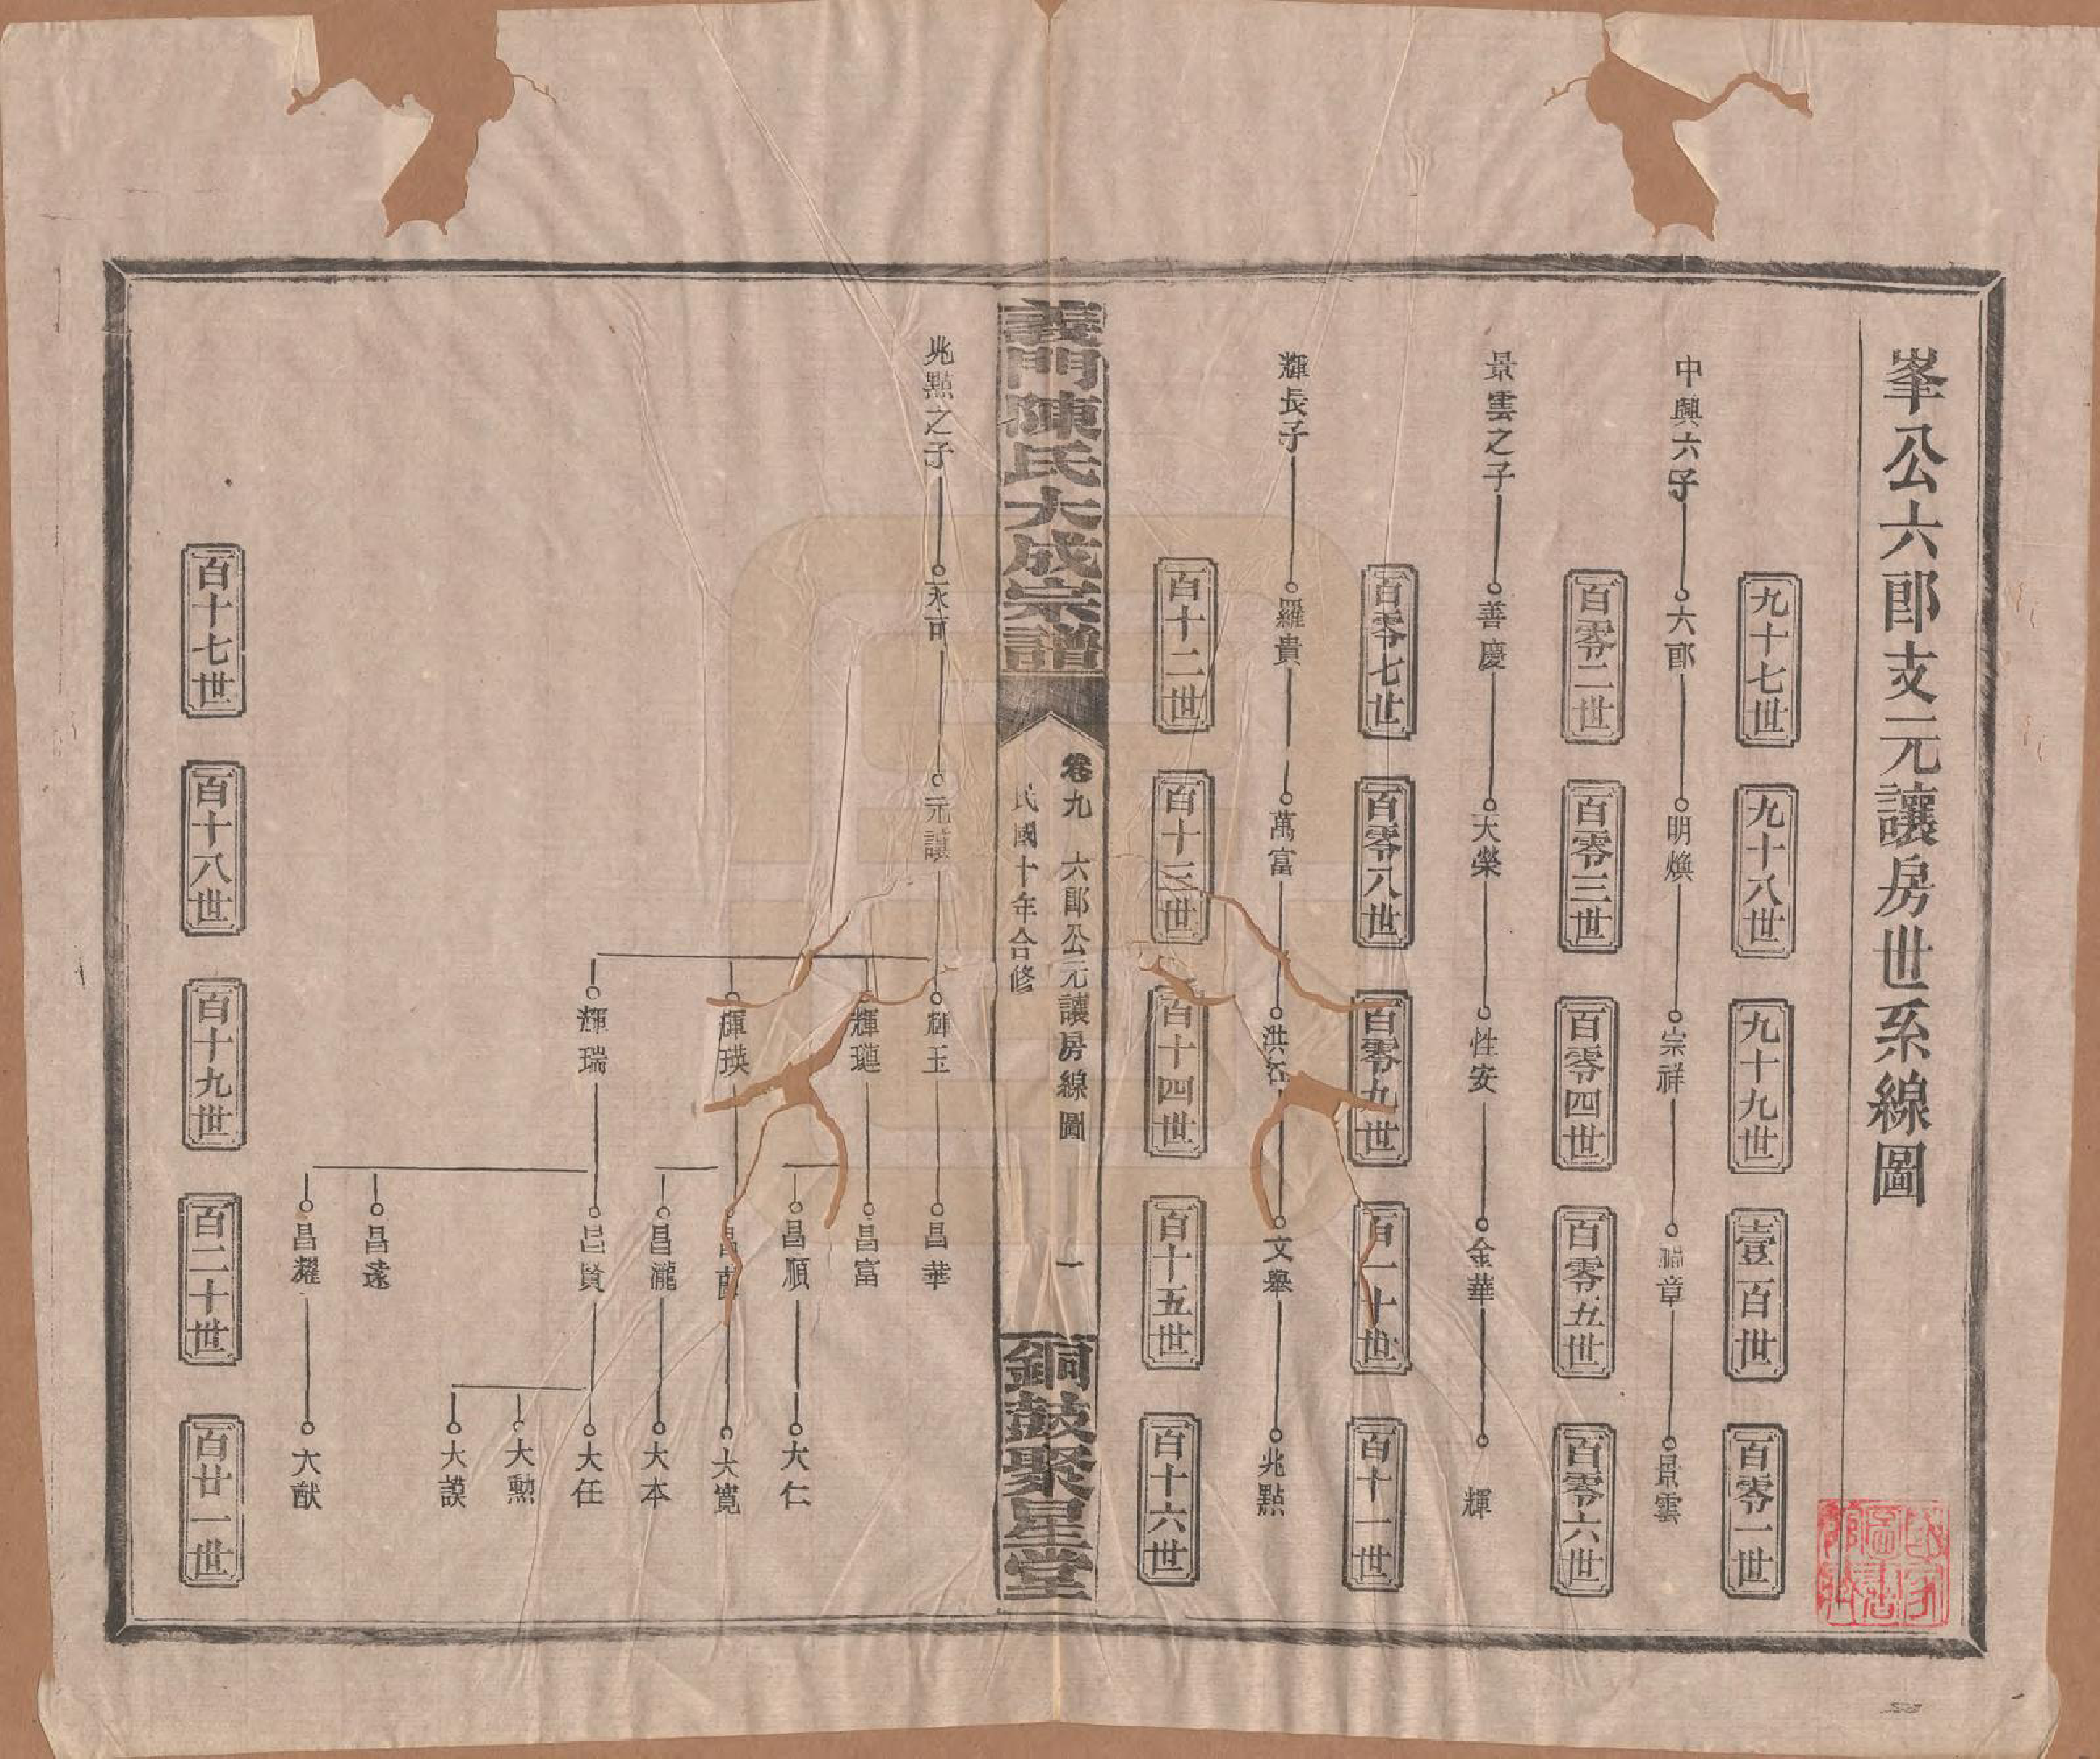 峯公六郎支元讓房世系線圖
九十七世
九十八世
九十九世
壹百世
百零一世
中興六子
六郎
明煥
宗祥
章
景雲
百零二世
百零三世
百零四世
百零五世
百零六世
景雲之子
善慶
天榮
性安
金華
輝
百零七世
百零八世
百零九世
百一十世
百十一世
輝長子
羅貴
萬富
洪
文舉
兆點
百十二世
百十三世
百十四世
百十五世
百十六世
義門陳氏大成宗譜
卷九 六郎公元讓房線圖 一
民國十年合修
銅鼓聚星堂
兆點之子
永可
元讓
輝玉
輝璉
輝瑛
輝瑞
昌華
昌富
昌順
昌
昌瀧
昌賢
昌遠
昌耀
大仁
大寬
大本
大任
大勲
大謨
大猷
百十七世
百十八世
百十九世
百二十世
百廿一世